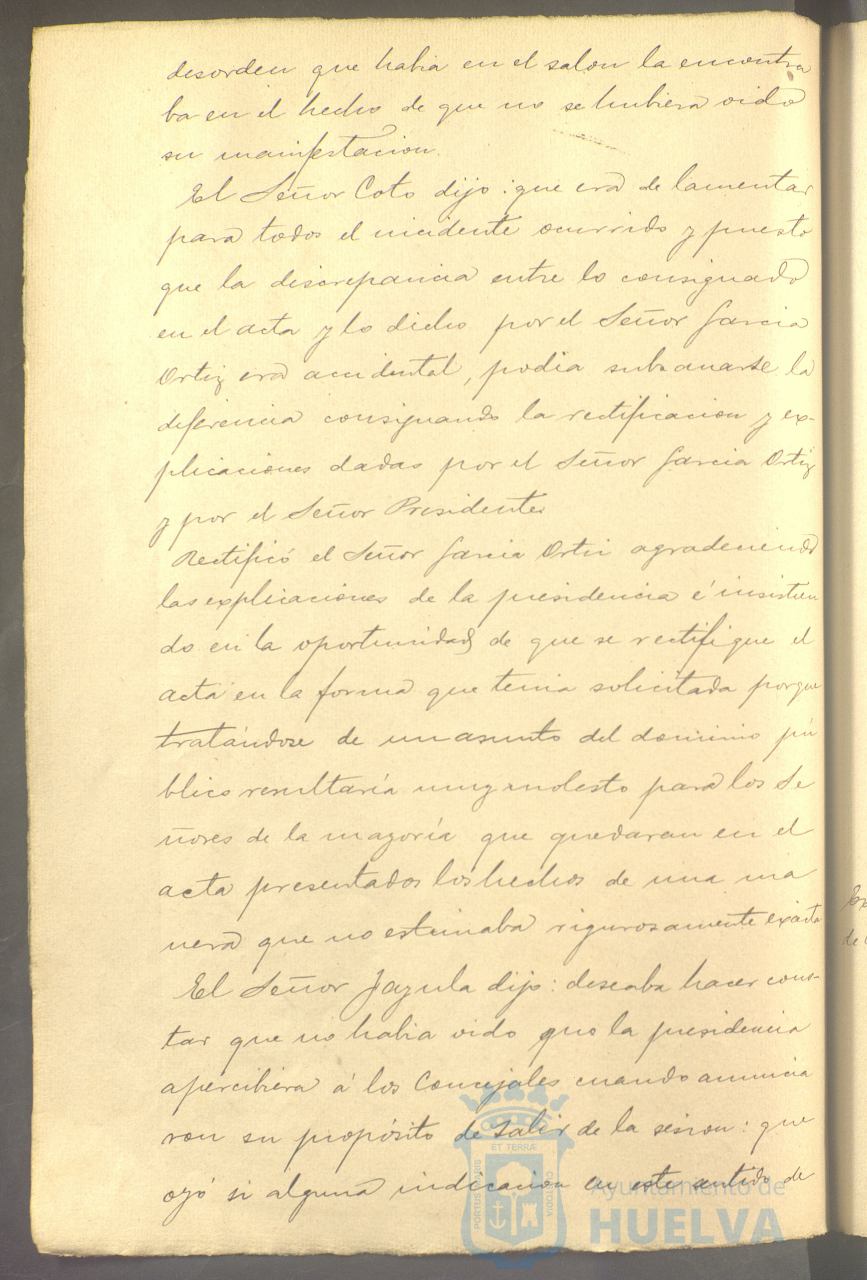 desorden que habia en el salon la encontra
ba en el hecho de que no se hubiera oido
su manifestacion.
El Señor Coto dijo: que era de lamentar
para todos el incidente ocurrido y puesto
que la discrepancia entre lo consignado
en el acta y lo dicho por el Señor Garcia
Ortiz era accidental, podia subsanarse la
diferencia consignando la rectificacion y ex-
plicaciones dadas por el Señor Garcia Ortiz
y por el Señor Presidente.
Rectificó el Señor Garcia Ortiz agradeciendo
las explicaciones de la presidencia é insistien
do en la oportunidad de que se rectifique el
acta en la forma que tenia solicitada porque
tratándose de un asunto del dominio pú
blico resultaría muy molesto para los Se
ñores de la mayoría que quedaran en el
acta presentados los hechos de una ma
nera que no estimaba rigurosamente exacta
El Señor Jazula dijo: deseaba hacer cons-
tar que no habia oido que la presidencia
apercibiera á los Concejales cuando anuncia
ron su propósito de salir de la sesion: que
oyó si alguna indicacion en este sentido de
ET TERRÆ
PORTUS MARIS
CUSTODIA
Ayuntamiento de
HUELVA